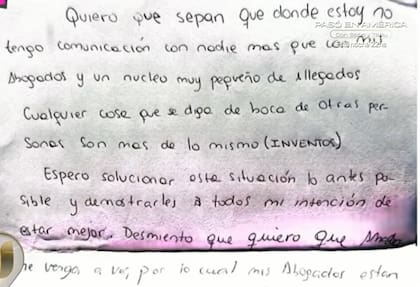 PASÓ EN AMÉRICA
Quiero que sepan que donde estoy no
tengo comunicación con nadie mas que con mis
Abogados y un nucleo muy pequeño de allegados
Cualquier cosa que se diga de boca de otras per-
sonas son mas de lo mismo (INVENTOS)
Espero solucionar esta situación lo antes po-
sible y demostrarles a todos mi intención de
estar mejor. Desmiento que quiero que
me venga a ver, por lo cual mis Abogados estan